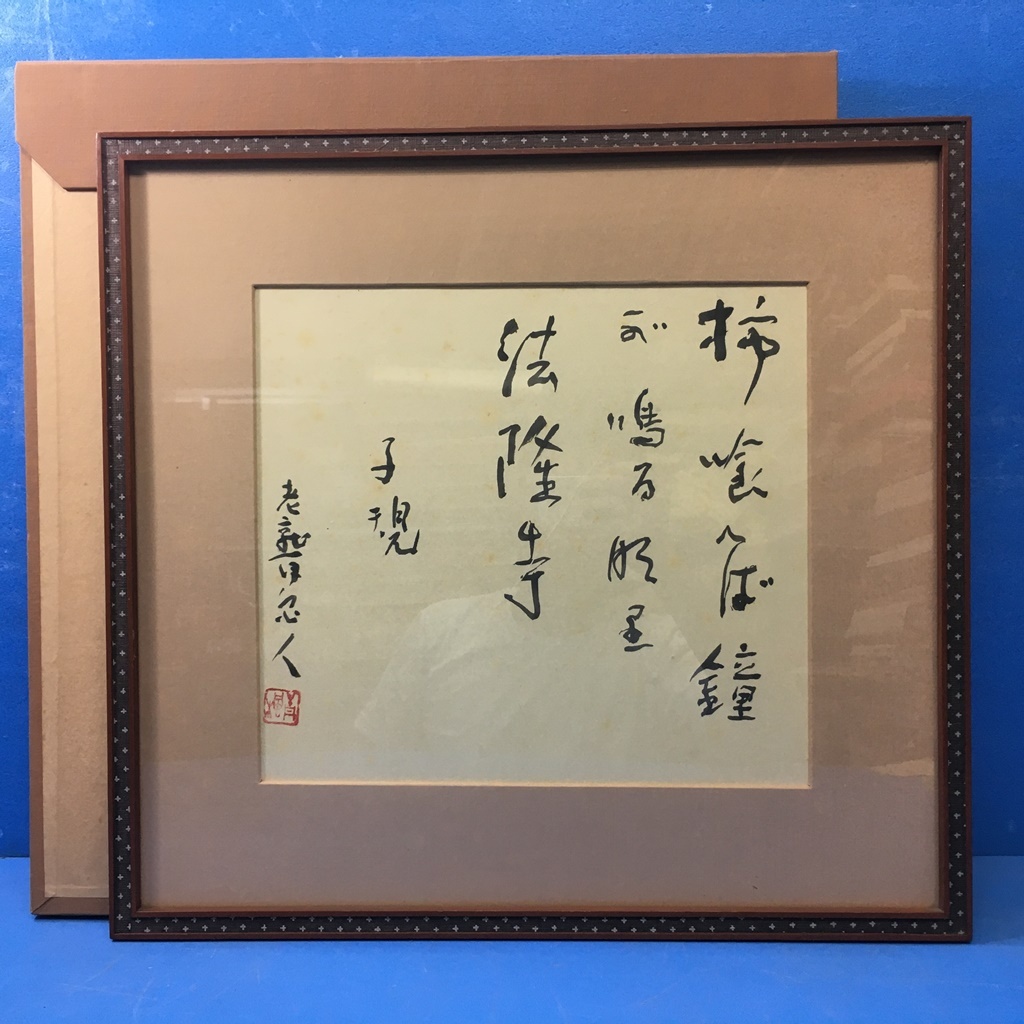 柿喰へば鐘
が鳴る那里
法隆寺
子規
老
人